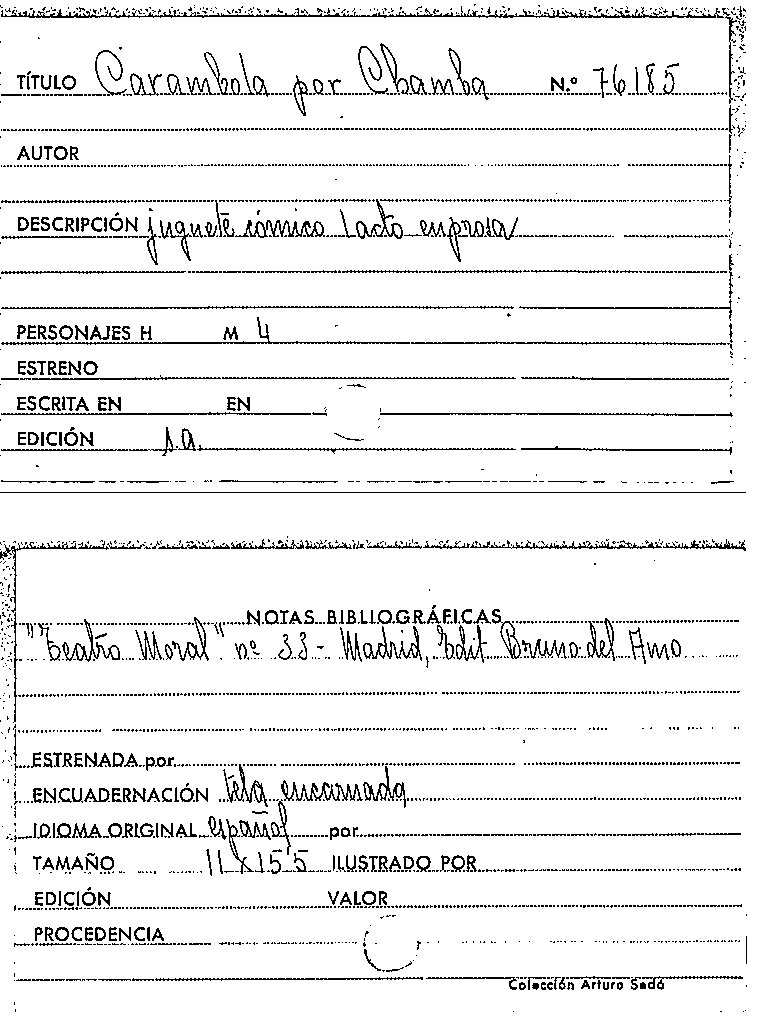 TÍTULO Carambola por Chamba N.º 76185
AUTOR
DESCRIPCIÓN juguete cómico 1 acto en prosa
PERSONAJES H M 4
ESTRENO
ESCRITA EN EN
EDICIÓN s.a.
NOTAS BIBLIOGRÁFICAS
"Teatro Moral" nº 33 - Madrid, Edit Bruno del Amo
ESTRENADA por
ENCUADERNACIÓN tela encarnada
IDIOMA ORIGINAL español por
TAMAÑO 11 x 15'5 ILUSTRADO POR
EDICIÓN VALOR
PROCEDENCIA
Colección Arturo Sedó